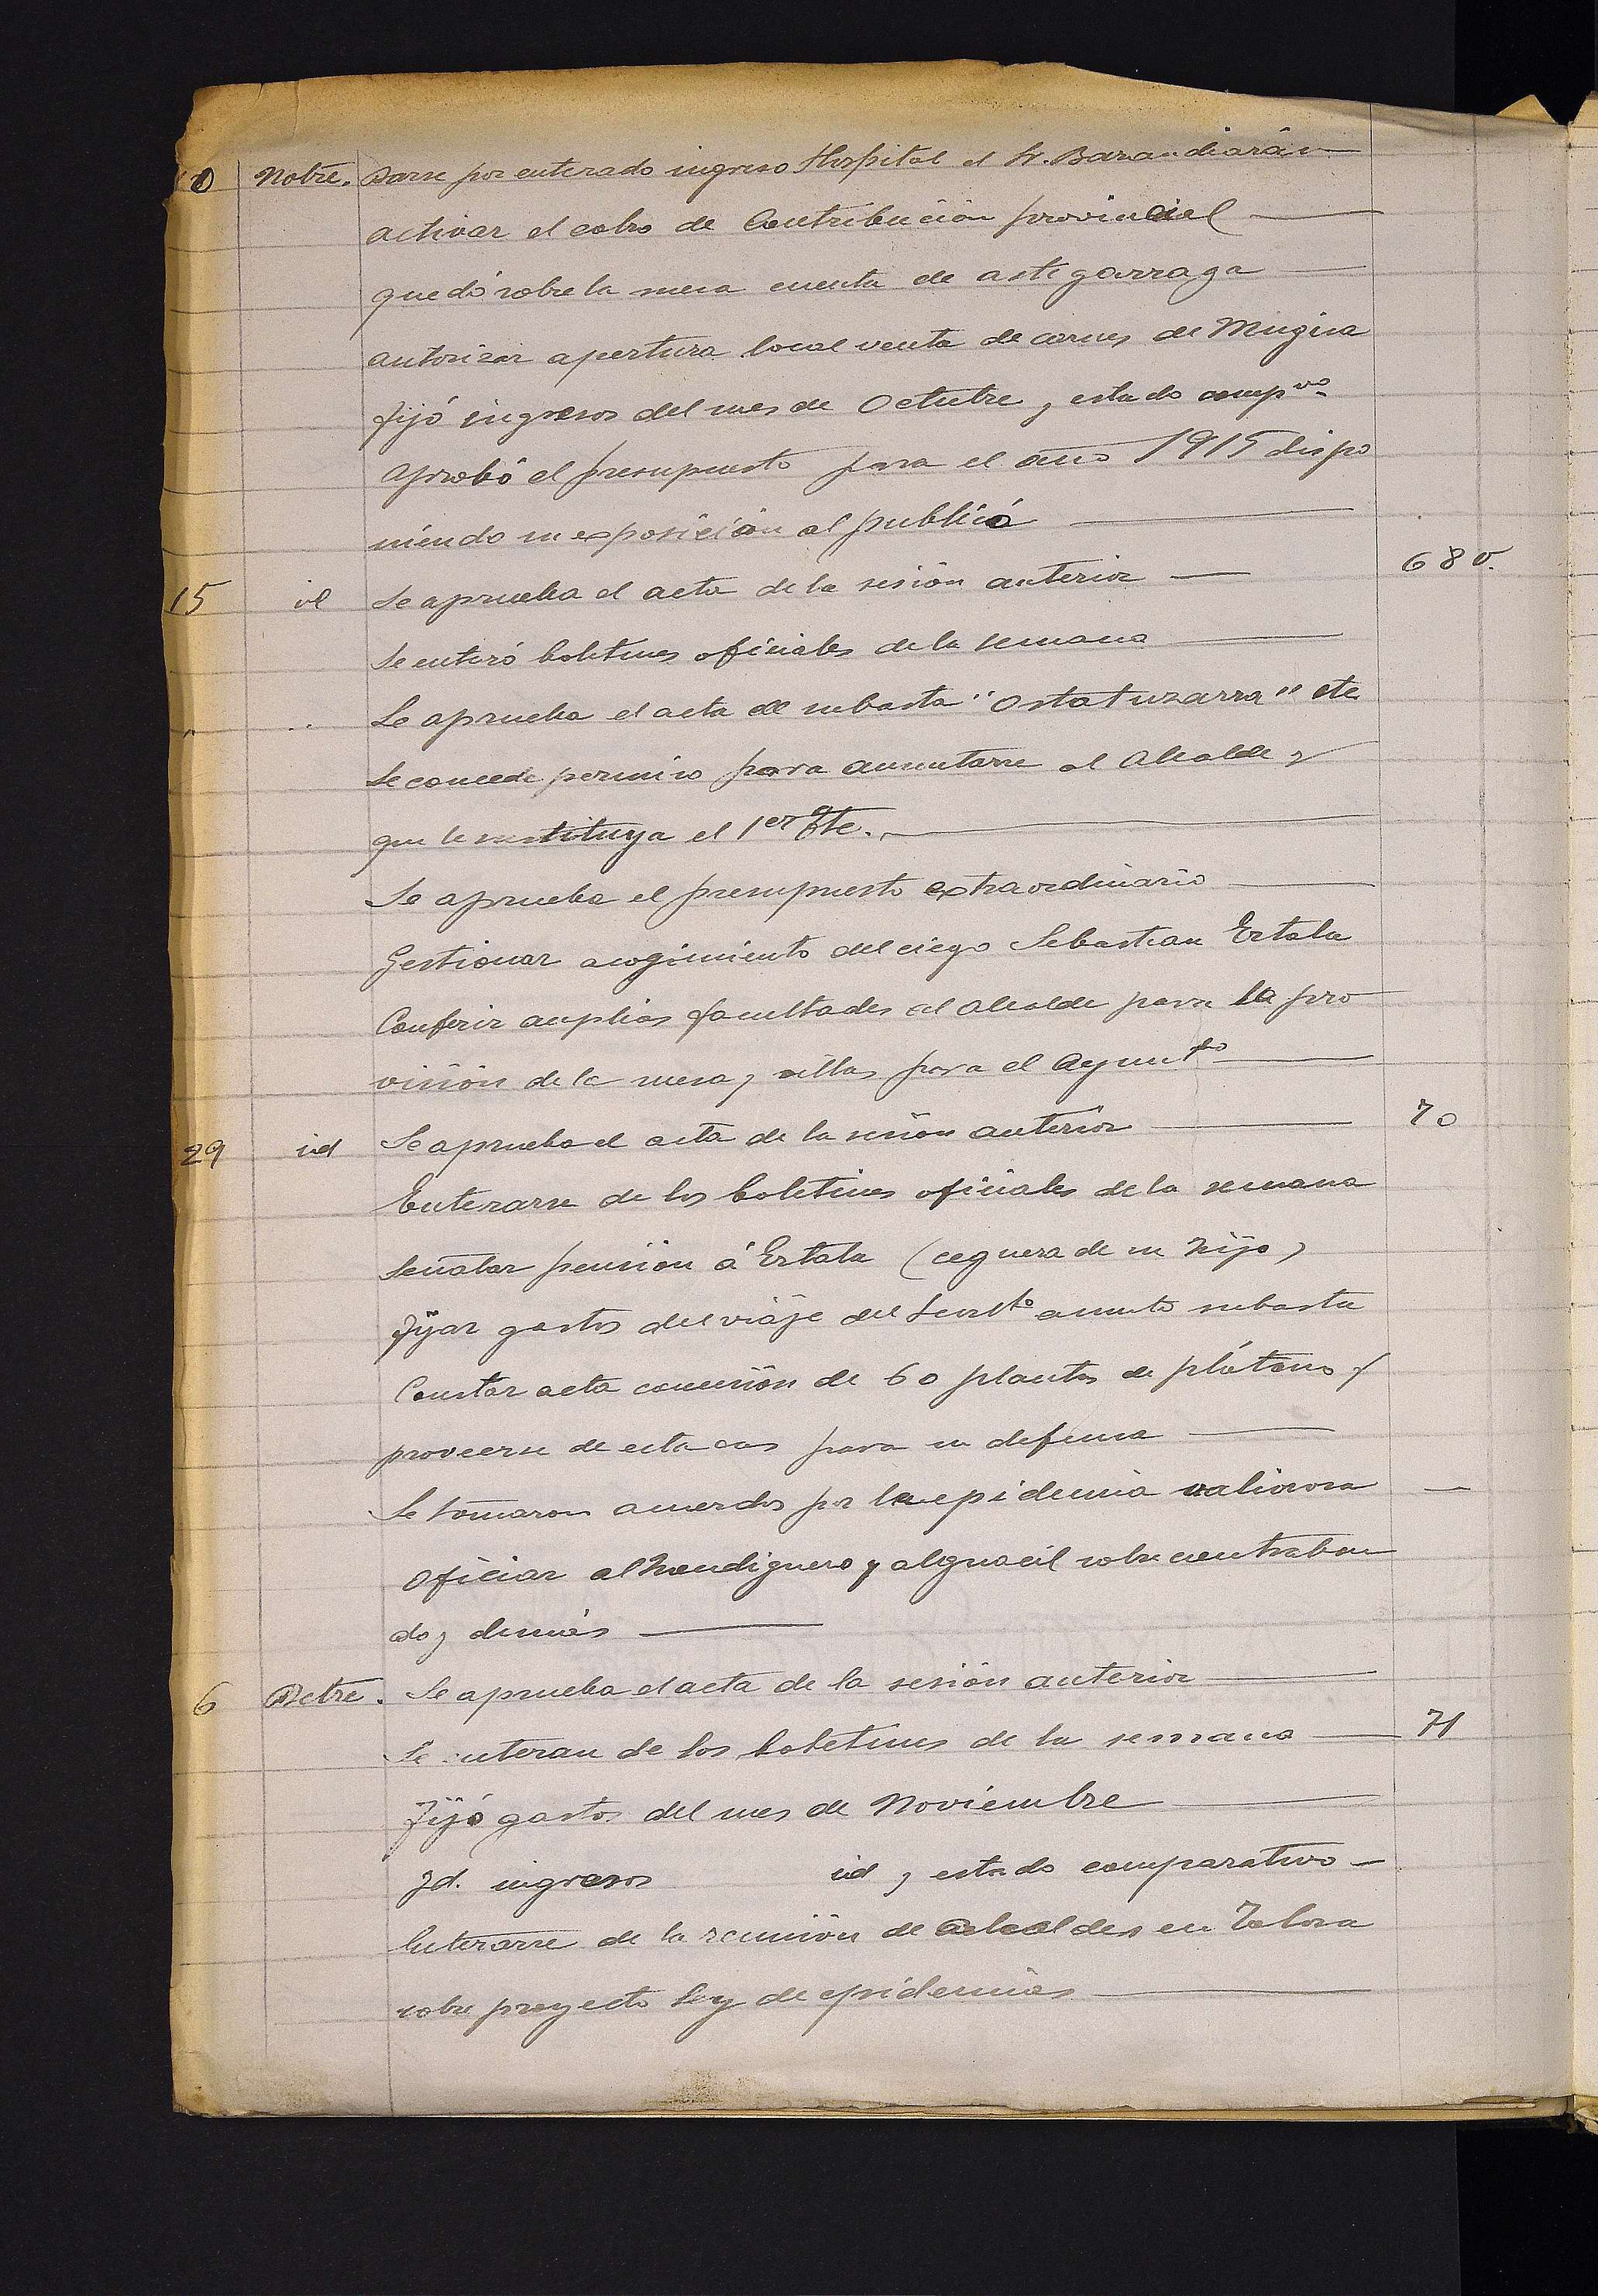 Nobre. Darse por enterado ingreso Hospital el Sr. Barandiarán
activar el cobro de Contribución provincial
quedó sobre la mesa cuenta de astigarraga
autorizar apertura local venta de carnes de Mugica
fijó ingresos del mes de Octubre y estado compvo
aprobó el presupuesto para el año 1915 dispo
niendo su exposición al público
15 id Se aprueba el acta de la sesión anterior 68 v.
Se enteró boletines oficiales de la semana
Se aprueba el acta de subasta "Ostatuzarra" etc
Se concede permiso para ausentarse al Alcalde y
que le sustituya el 1er Tte.
Se aprueba el presupuesto extraordinario
Gestionar acogimiento del ciego Sebastian Ertala
Conferir amplias facultades al alcalde para la pro
visión de la mesa y sillas para el Ayuntto
29 id Se aprueba el acta de la sesión anterior 70
Enterarse de los boletines oficiales de la semana
Señalar pensión á Ertala (ceguera de su hijo)
Fijar gastos del viaje del asunto subasta
Constar acta concesión de 60 plantas de plátano y
proveerse de estacas para su defensa
Se tomaron acuerdos por la epidemia variolosa
Oficiar al y alguacil sobre contraban
do y demás
6 Dctre. Se aprueba el acta de la sesión anterior
Se enteran de los boletines de la semana 71
Fijó gastos del mes de Noviembre
Id. ingresos id y estado comparativo
Enterarse de la reunión de alcaldes en Tolosa
sobre proyecto ley de epidemias